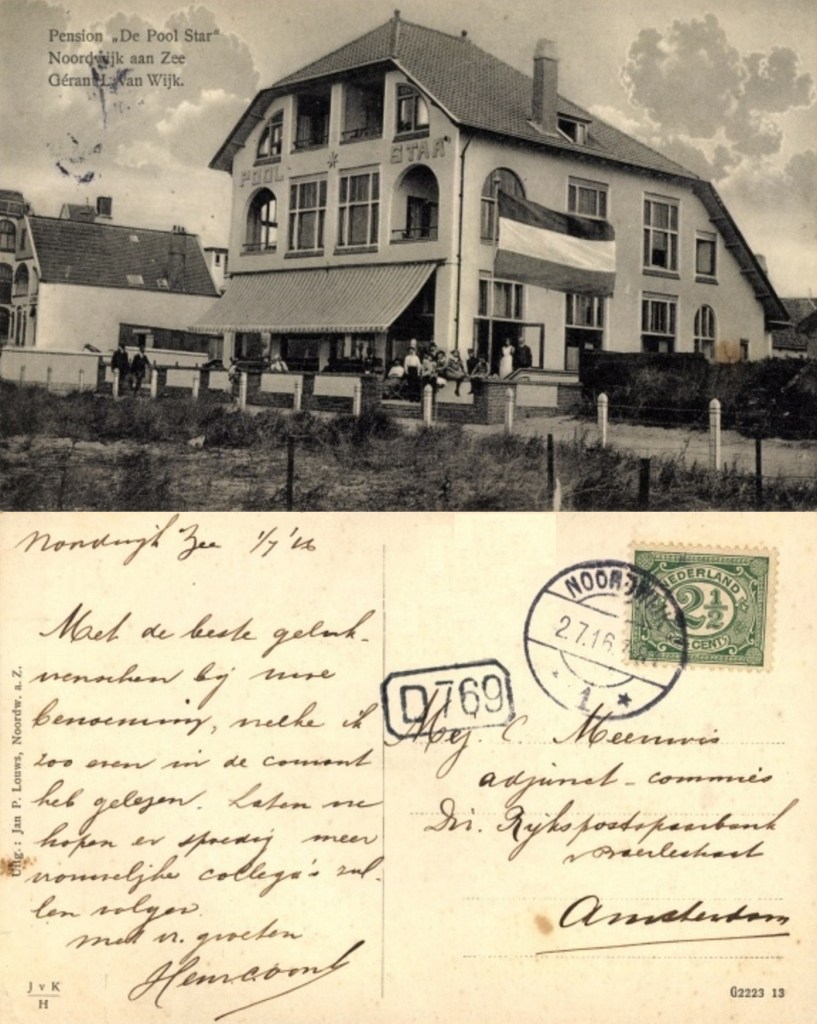 Pension „De Pool Star"
Noordwijk aan Zee
Gérant L. van Wijk.
POOL * STAR
Noordwijk Zee 1/7 '16
Met de beste geluk-
wenschen bij uwe
benoeming, welke ik
zoo even in de courant
heb gelezen. Laten we
hopen er spoedig meer
vrouwelijke collega's zul-
len volgen.
met vr. groeten
Uitg.: Jan P. Louws, Noordw. a. Z.
J v K
H
NEDERLAND
2½
CENT
NOORDWIJK
2.7.16
1 *
D 769
Mej. C. Meeuwis
adjunct-commies
Dir. Rijkspostspaarbank
Amsterdam
G2223 13